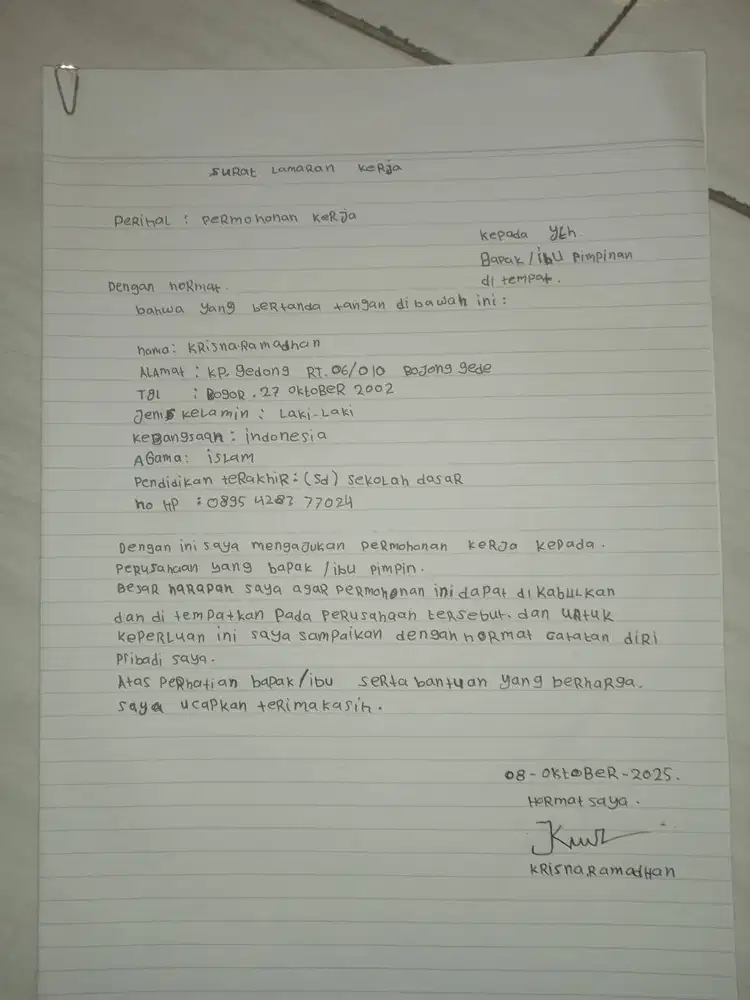 Surat Lamaran Kerja
Perihal : Permohonan Kerja
Kepada Yth
Bapak/ibu Pimpinan
di tempat.
Dengan hormat.
bahwa yang bertanda tangan dibawah ini :
nama: Krisna Ramadhan
Alamat : KP. gedong RT.06/010 Bojong gede
Tgl : Bogor. 27 Oktober 2002
Jenis Kelamin : Laki-Laki
Kebangsaan : indonesia
Agama: islam
Pendidikan terakhir: (Sd) Sekolah dasar
no HP : 0895 4283 77024
Dengan ini saya mengajukan permohonan kerja kepada.
Perusahaan yang bapak/ibu pimpin.
Besar harapan saya agar permohonan ini dapat di kabulkan
dan di tempatkan pada perusahaan tersebut. dan untuk
keperluan ini saya sampaikan dengan hormat catatan diri
Pribadi saya.
Atas perhatian bapak/ibu serta bantuan yang berharga.
saya ucapkan terimakasih.
08-Oktober-2025.
Hormat saya.
Krisna Ramadhan